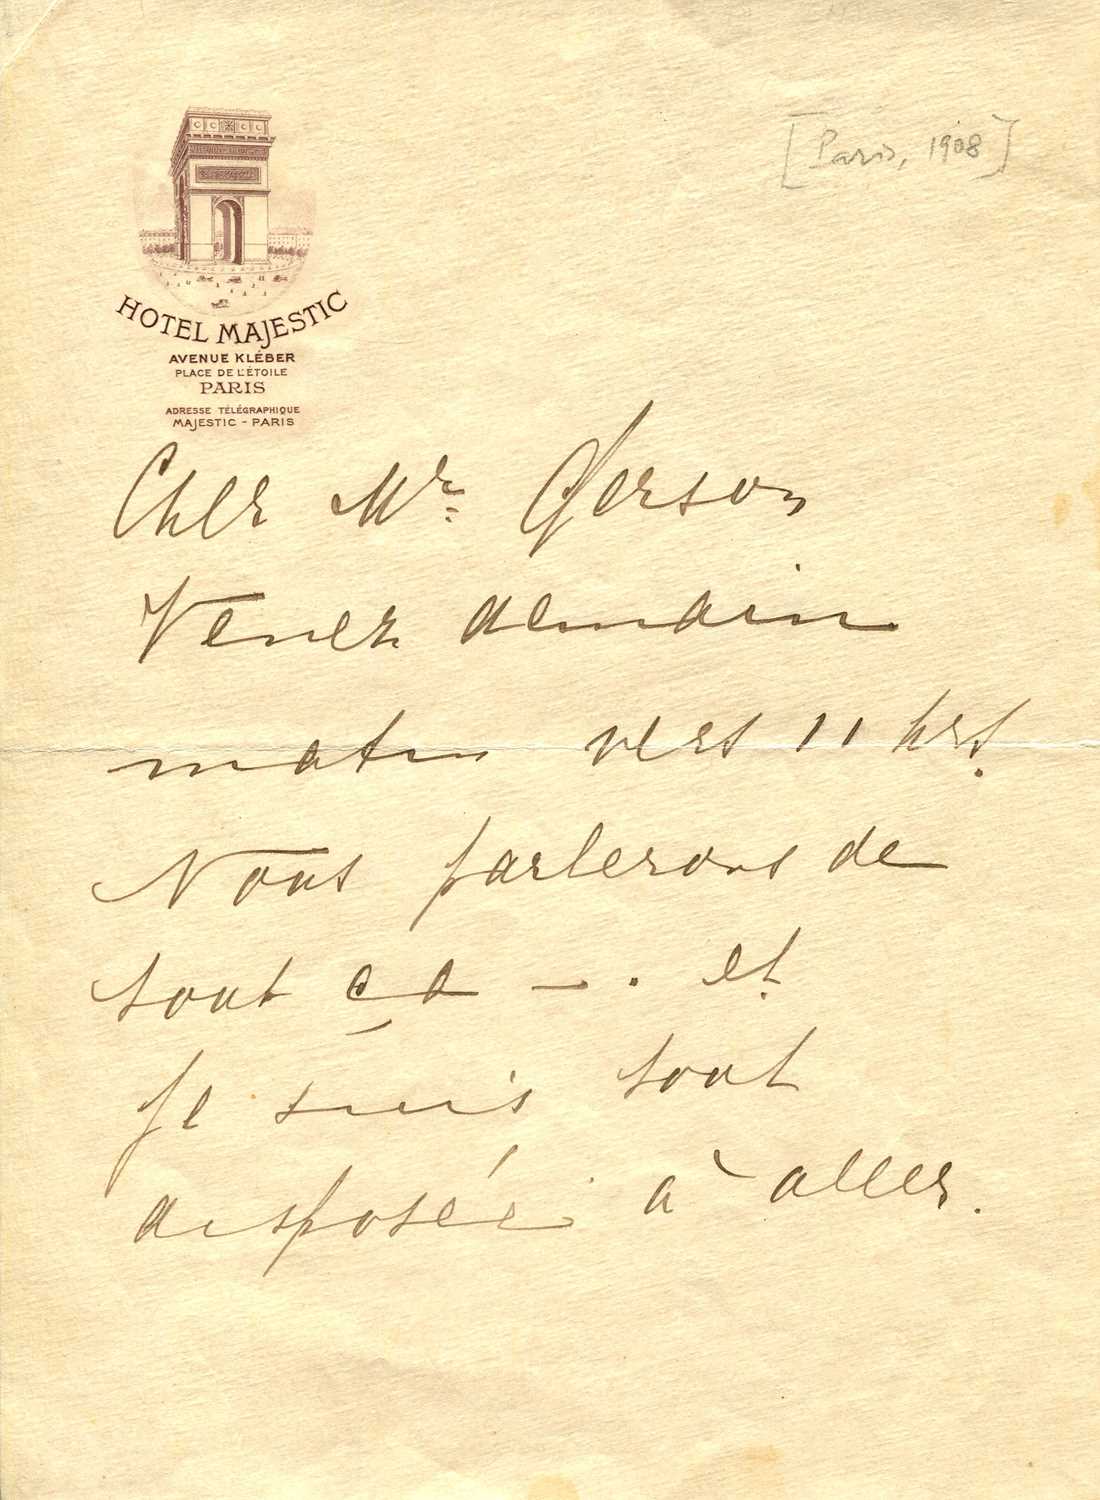 [Paris, 1908]
HOTEL MAJESTIC
AVENUE KLÉBER
PLACE DE L'ÉTOILE
PARIS
ADRESSE TÉLÉGRAPHIQUE
MAJESTIC - PARIS
Cher Mr. Gerson
Venez demain
matin vers 11 hrs.
Nous parlerons de
tout ça —. et
je suis tout
disposée à aller.